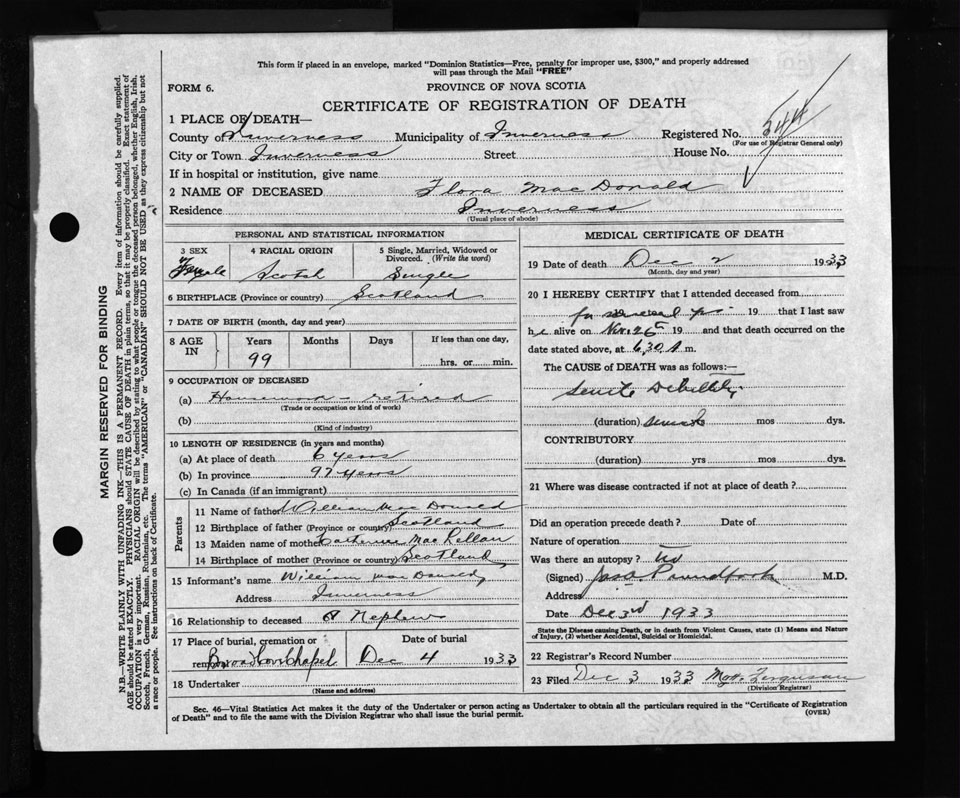 This form if placed in an envelope, marked "Dominion Statistics—Free, penalty for improper use, $300," and properly addressed
will pass through the Mail "FREE"
FORM 6.
PROVINCE OF NOVA SCOTIA
CERTIFICATE OF REGISTRATION OF DEATH
1 PLACE OF DEATH—
County of Inverness Municipality of Inverness Registered No. 544
(For use of Registrar General only)
City or Town Inverness Street House No.
If in hospital or institution, give name
2 NAME OF DECEASED Flora MacDonald
Residence Inverness
(Usual place of abode)
PERSONAL AND STATISTICAL INFORMATION
3 SEX 4 RACIAL ORIGIN 5 Single, Married, Widowed or
Divorced. (Write the word)
Female Scotch Single
6 BIRTHPLACE (Province or country) Scotland
7 DATE OF BIRTH (month, day and year)
8 AGE IN Years Months Days If less than one day,
99 hrs. or min.
9 OCCUPATION OF DECEASED
(a) Housework - retired
(Trade or occupation or kind of work)
(b)
(Kind of industry)
10 LENGTH OF RESIDENCE (in years and months)
(a) At place of death 6 years
(b) In province 97 years
(c) In Canada (if an immigrant)
Parents
11 Name of father William MacDonald
12 Birthplace of father (Province or country) Scotland
13 Maiden name of mother Catherine MacLellan
14 Birthplace of mother (Province or country) Scotland
15 Informant's name William MacDonald
Address Inverness
16 Relationship to deceased A Nephew
17 Place of burial, cremation or Date of burial
removal Chapel Dec 4 1933
18 Undertaker
(Name and address)
MEDICAL CERTIFICATE OF DEATH
19 Date of death Dec 2 1933
(Month, day and year)
20 I HEREBY CERTIFY that I attended deceased from
for several yrs 19 that I last saw
h e alive on Nov. 25 19 and that death occurred on
the date stated above, at 6,30 A m.
The CAUSE of DEATH was as follows:—
Senile Debility
(duration) mos dys.
CONTRIBUTORY
(duration) yrs mos dys.
21 Where was disease contracted if not at place of death?
Did an operation precede death? Date of
Nature of operation
Was there an autopsy? No
(Signed) M.D.
Address
Date Dec 3rd 1933
State the Disease causing Death, or in death from Violent Causes, state (1) Means and Nature
of Injury, (2) whether Accidental, Suicidal or Homicidal.
22 Registrar's Record Number
23 Filed Dec 3 1933 Ferguson
(Division Registrar)
Sec. 46—Vital Statistics Act makes it the duty of the Undertaker or person acting as Undertaker to obtain all the particulars required in the "Certificate of Registration
of Death" and to file the same with the Division Registrar who shall issue the burial permit. (OVER)
MARGIN RESERVED FOR BINDING
N.B.—WRITE PLAINLY WITH UNFADING INK—THIS IS A PERMANENT RECORD. Every item of information should be carefully supplied.
AGE should be stated EXACTLY. PHYSICIANS should STATE CAUSE OF DEATH in plain terms, so that it may be properly classified. Exact statement of
OCCUPATION is very important. RACIAL ORIGIN will be described by stating to what people or tongue the deceased person belonged, whether English, Irish,
Scotch, French, German, Russian, Ruthenian, etc. The terms "AMERICAN" or "CANADIAN" SHOULD NOT BE USED as they express citizenship but not
a race or people. See instructions on back of Certificate.